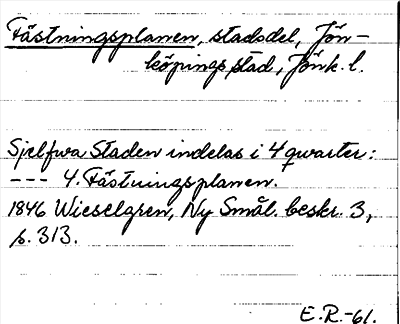 Fästningsplanen, stadsdel, Jön-
köpings stad, Jönk. l.
Sjelfwa Staden indelas i 4 qwarter:
--- 4. Fästningsplanen.
1846 Wieselgren, Ny Smål. beskr. 3,
s. 313.
E.R.-61.